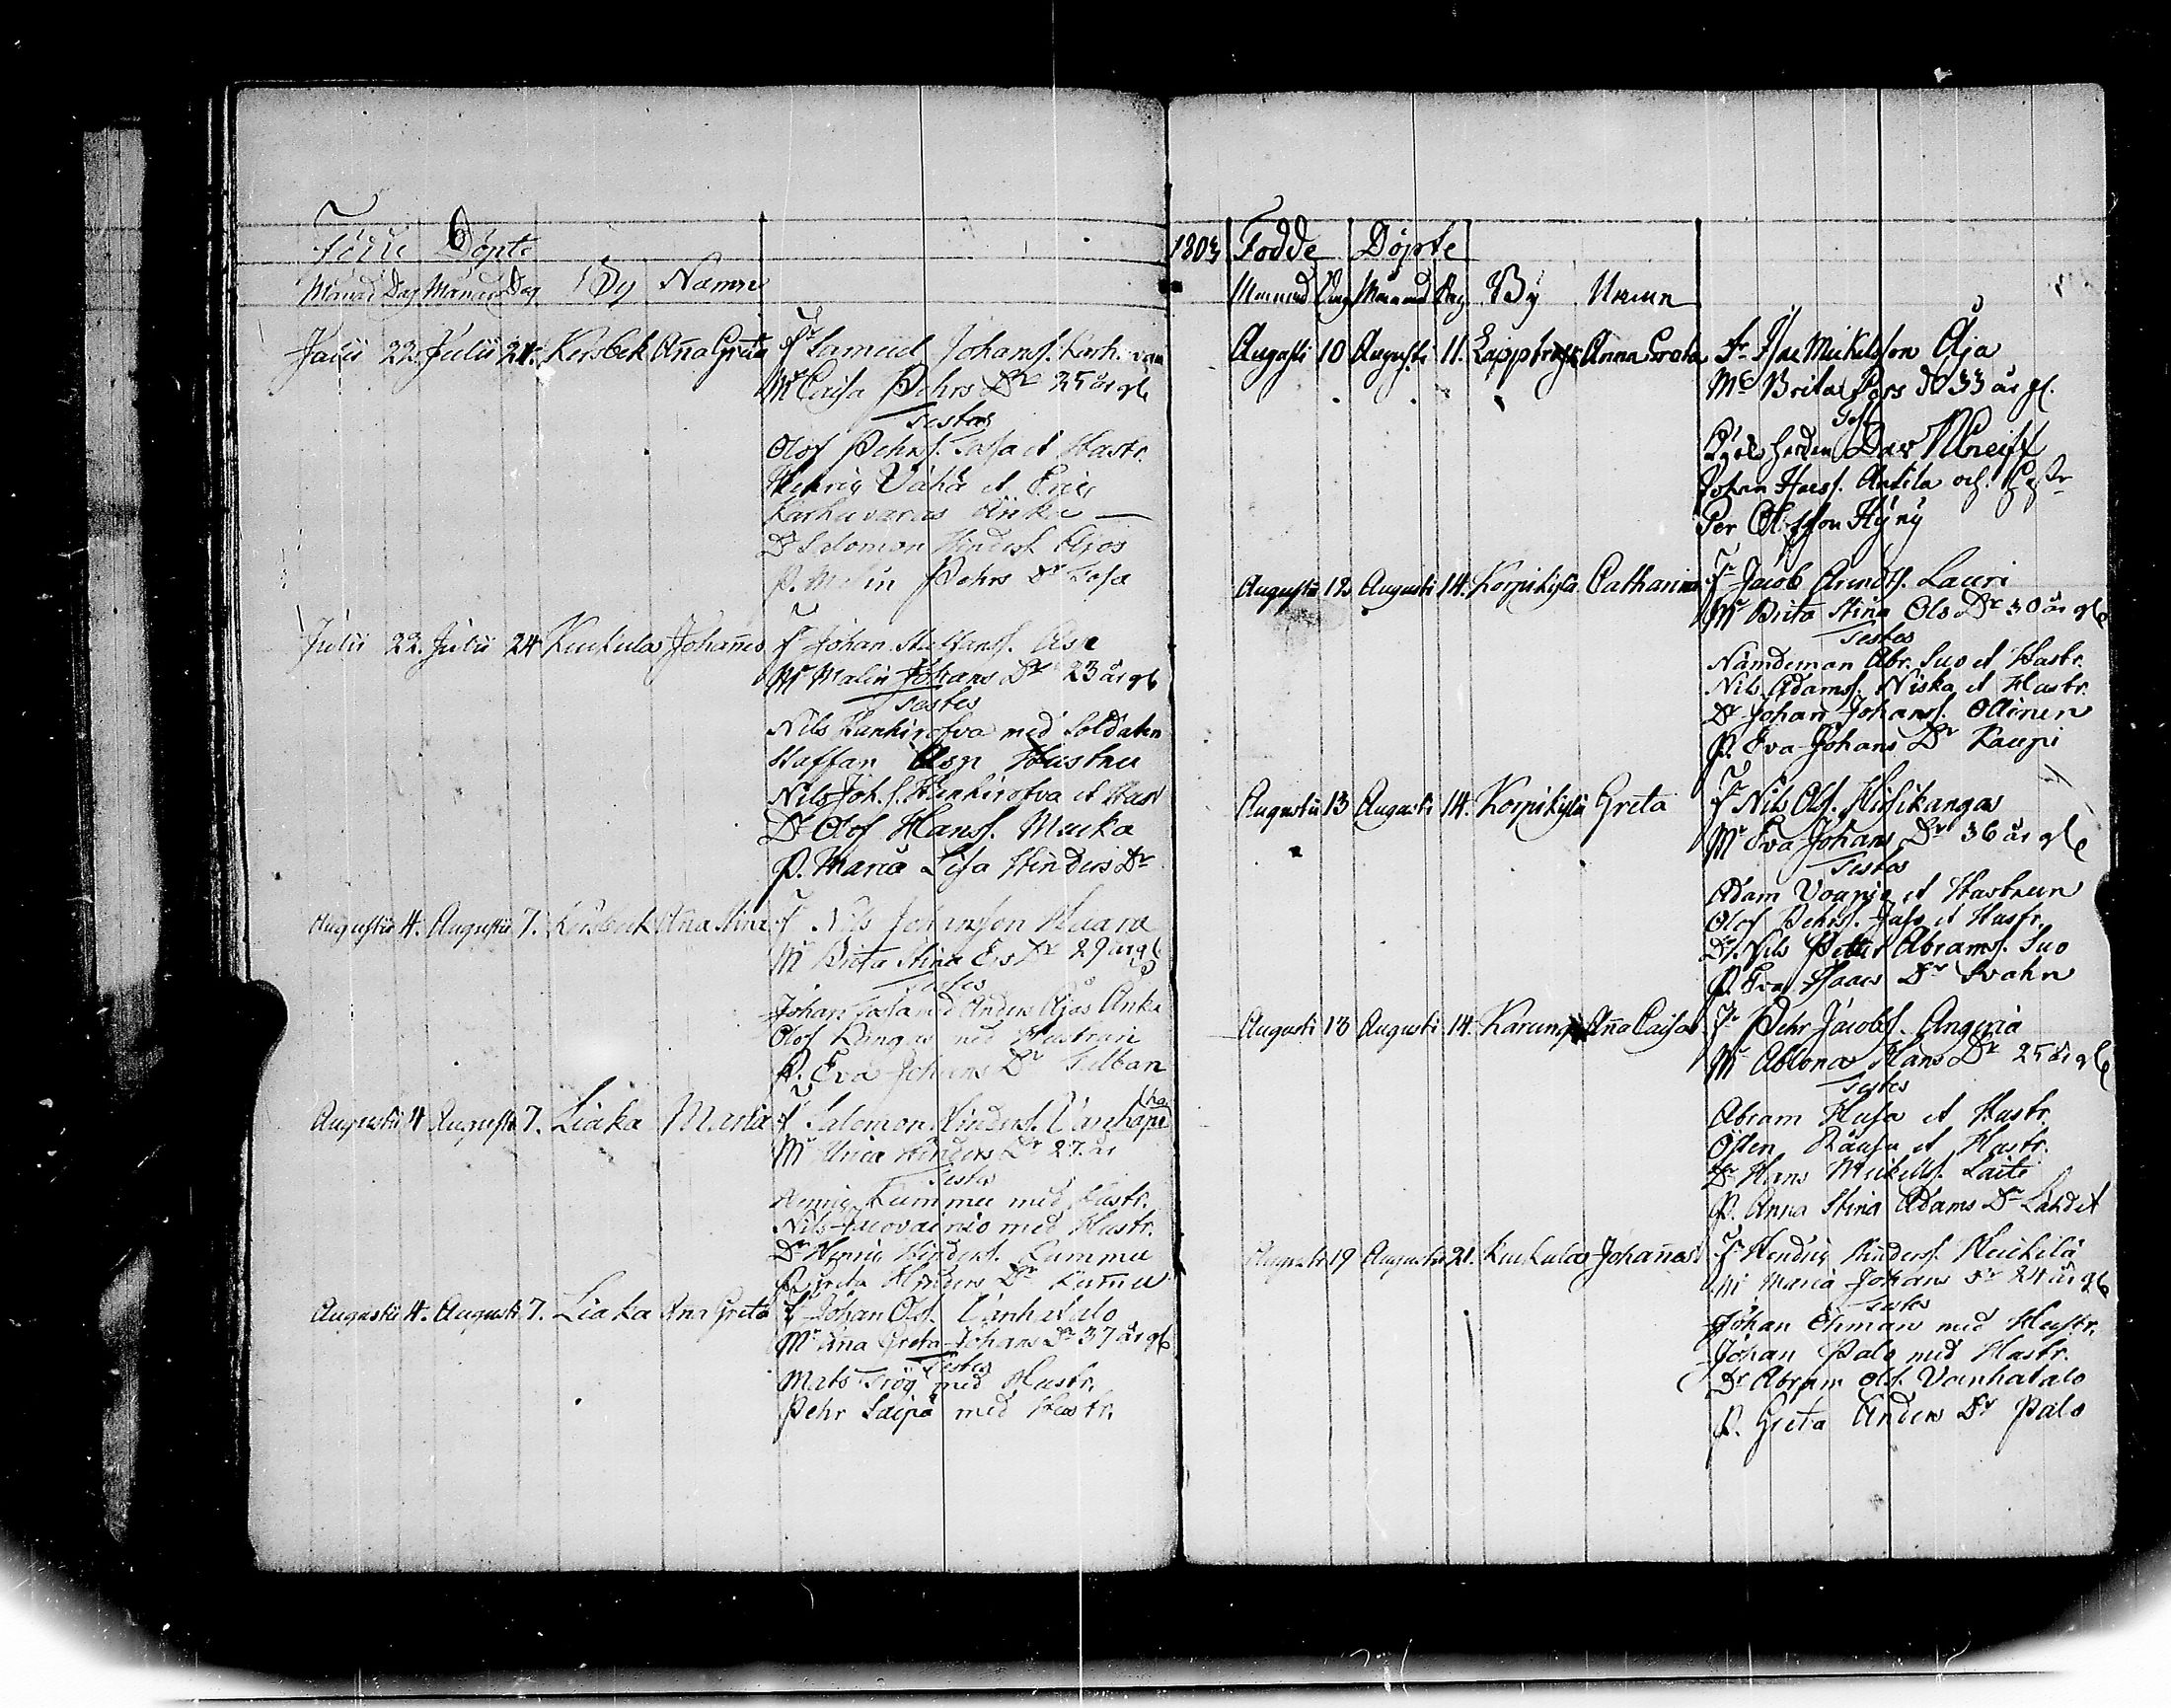 Födde Döpte
Månad Dag Månad Dag By Namn
Julii 22. Julii 24. Kersbek Aña Greta Fr Samuel Johans. Karhuvaa
Mr Caisa Pehrs Dr 25 år gl
Testes
Olof Pehrs. Lasa et Hustr.
Henric Vähä et Eric
Karhuvaras Änka
Dr Salomon Hinders. Ajos
P. Malin Pehrs Dr Lasa
Julii 22. Julii 24 Kuckula Johañes Fr Johan Staffans. Asp
Mr Malin Johans Dr 23 år gl
Testes
Nils Hanhirofva med Soldaten
Staffan Asps Hustru
Nils Joh.s. Hanhirofva et Hust
Dr Olof Hans. Mucka
P. Maria Lisa Hinders Dr
Augustii 4. Augustii 7. Kersbeck Aña Stina Fr Nils Johansson
Mr Brita Stina Ers Dr 29 år gl
Testes
Johan med Anders Ajos Änka
Olof Kangas med Hustrun
P. Eva Johans Dr
Augustii 4 Augustii 7. Liaka Maria Fr Salomon Hinders. Vanhapiha
Mr Hinders Dr 27. år
Testes
Henric Lummu med Hustr.
Nils med Hustr.
Dr Henric Hinders. Lummu
P. Greta Hinders Dr Lum̃u
Augustii 4. Augusti 7. Liaka Aña Greta Fr Johan Ols. Vanhatalo
Mr Aña Greta Johans Dr 37 år gl
Testes
Mats Tröj med Hustr.
Pehr Saipa med Hustr.
1803 Födde Döpte
Månad Dag Månad Dag By Namn
Augusti 10 Augusti 11. Lappträsk Anna Greta Fr Isac Mickelsson Äja
Mr Brita Pers dr 33 år gl.
Test
Johan Hans. Antila och Hustr
Per Olofsson Hyny
Augustii 12 Augusti 14. Korpikylä Catharina Fr Jacob Arends. Lauri
Mr Brita Stina Ols Dr 30 år gl
Testes
Nämdeman Abr. Suo et Hustr.
Nils Adams. Niska et Hustr.
Dr Johan Johans. Ollinen
P. Eva Johans Dr Kaupi
Augustii 13 Augusti 14. Korpikylä Greta Fr Nils Ols. Hirsikangas
Mr Eva Johans Dr 36 år gl
Testes
Adam et Hustrun
Olof Pehrs. et Hustr.
Dr. Nils Petter Abrams. Suo
P. Eva Isaacs Dr Svahn
Augusti 13 Augusti 14. Karungi Aña Caisa Fr Pehr Jacobs. Angeria
Mr Ablona Hans Dr 25 år gl
Testes
Abram Husa et Hustr.
Östen Räuhä et Hustr.
Dr Hans Mickels. Laiti
P. Anna Stina Adams Dr Lahdet
Augusti 19 Augustii 21. Kuckula Johañes Fr Hendric Hinders. Heickilä
Mr Maria Johans Dr 24 år gl
Testes
Johan Öhman med Hustr.
Johan Palo med Hustr.
Dr Abram Ols. Vanhatalo
P. Greta Anders Dr Palo